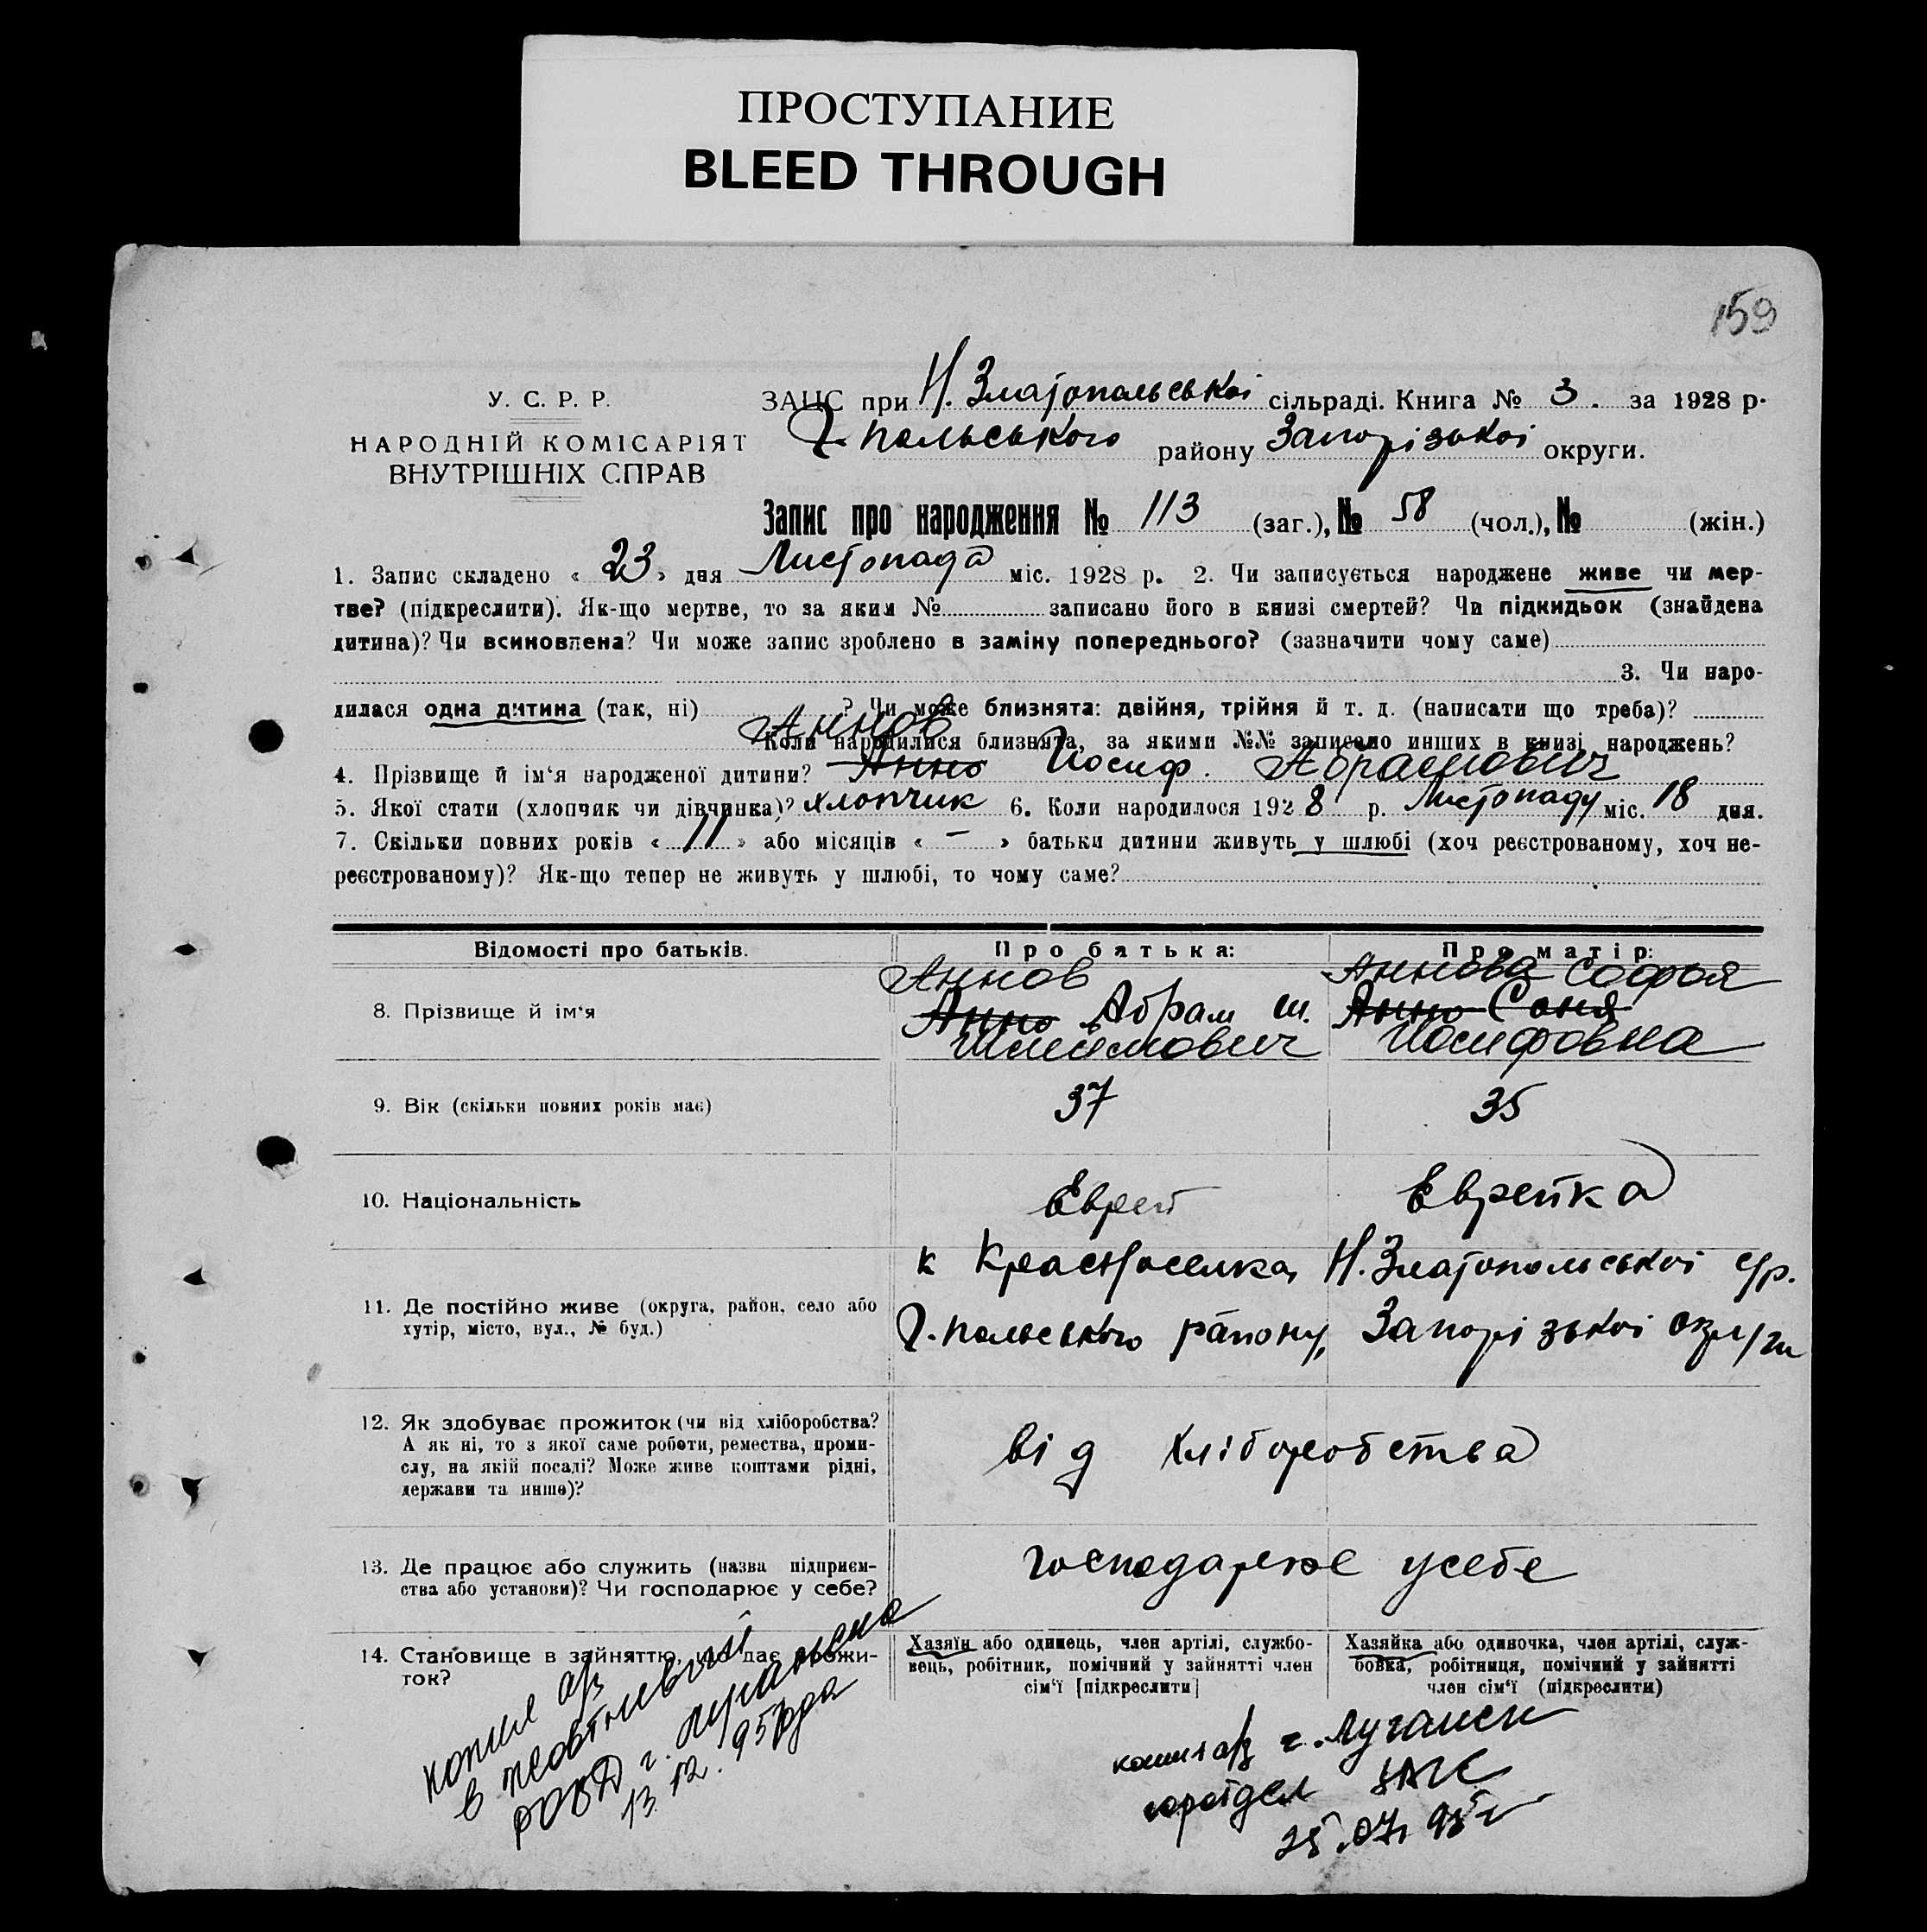 ПРОСТУПАНИЕ
BLEED THROUGH
159
У. С. Р. Р.
НАРОДНІЙ КОМІСАРІЯТ
ВНУТРІШНІХ СПРАВ
ЗАЦС при Н. Златопольськоі сільраді. Книга № 3. за 1928 р.
польського району Запорізькоі округи.
Запис про народження № 113 (заг.), № 58 (чол.), № (жін.)
1. Запис складено « 23 » дня Листопада міс. 1928 р. 2. Чи записується народжене живе чи мер-
тве? (підкреслити). Як-що мертве, то за яким № записано його в книзі смертей? Чи підкидьок (знайдена
дитина)? Чи всиновлена? Чи може запис зроблено в заміну попереднього? (зазначити чому саме)
3. Чи наро-
дилася одна дитина (так, ні) ? Чи може близнята: двійня, трійня й т. д. (написати що треба)?
Коли народилися близнята, за якими №№ записано инших в книзі народжень?
Аннов
4. Прізвище й ім'я народженої дитини? Анно Иосиф. Абрамович
5. Якої стати (хлопчик чи дівчинка)? хлопчик 6. Коли народилося 1928 р. Листопаду міс. 18 дня.
7. Скільки повних років « 11 » або місяців « – » батьки дитини живуть у шлюбі (хоч реєстрованому, хоч не-
реєстрованому)? Як-що тепер не живуть у шлюбі, то чому саме?
Відомості про батьків.
Про батька:
Про матір:
8. Прізвище й ім'я
Аннов
Анно Абрам Ш.
Аннова Софья
Анно Соня
Иосифовна
9. Вік (скільки повних років має)
37
35
10. Національність
Еврей
Еврейка
11. Де постійно живе (округа, район, село або
хутір, місто, вул., № буд.)
к Красноселка, Н. Златопольськоі с/р.
польського району, Запорізькоі округи
12. Як здобуває прожиток (чи від хліборобства?
А як ні, то з якої саме роботи, ремества, проми-
слу, на якій посаді? Може живе коштами рідні,
держави та инше)?
від хліборобства
13. Де працює або служить (назва підприєм-
ства або установи)? Чи господарює у себе?
господарює у себе
14. Становище в зайняттю, що дає прожи-
ток?
Хазяїн або одинець, член артілі, службо-
вець, робітник, помічний у зайнятті член
сім'ї [підкреслити]
Хазяйка або одиночка, член артілі, служ-
бовка, робітниця, помічний у зайнятті
член сім'ї (підкреслити)
копия а/з
в
РОВД г.
13. 12. 95 года
а/з г. Луганск
ЗАГС
25.07. 95 г